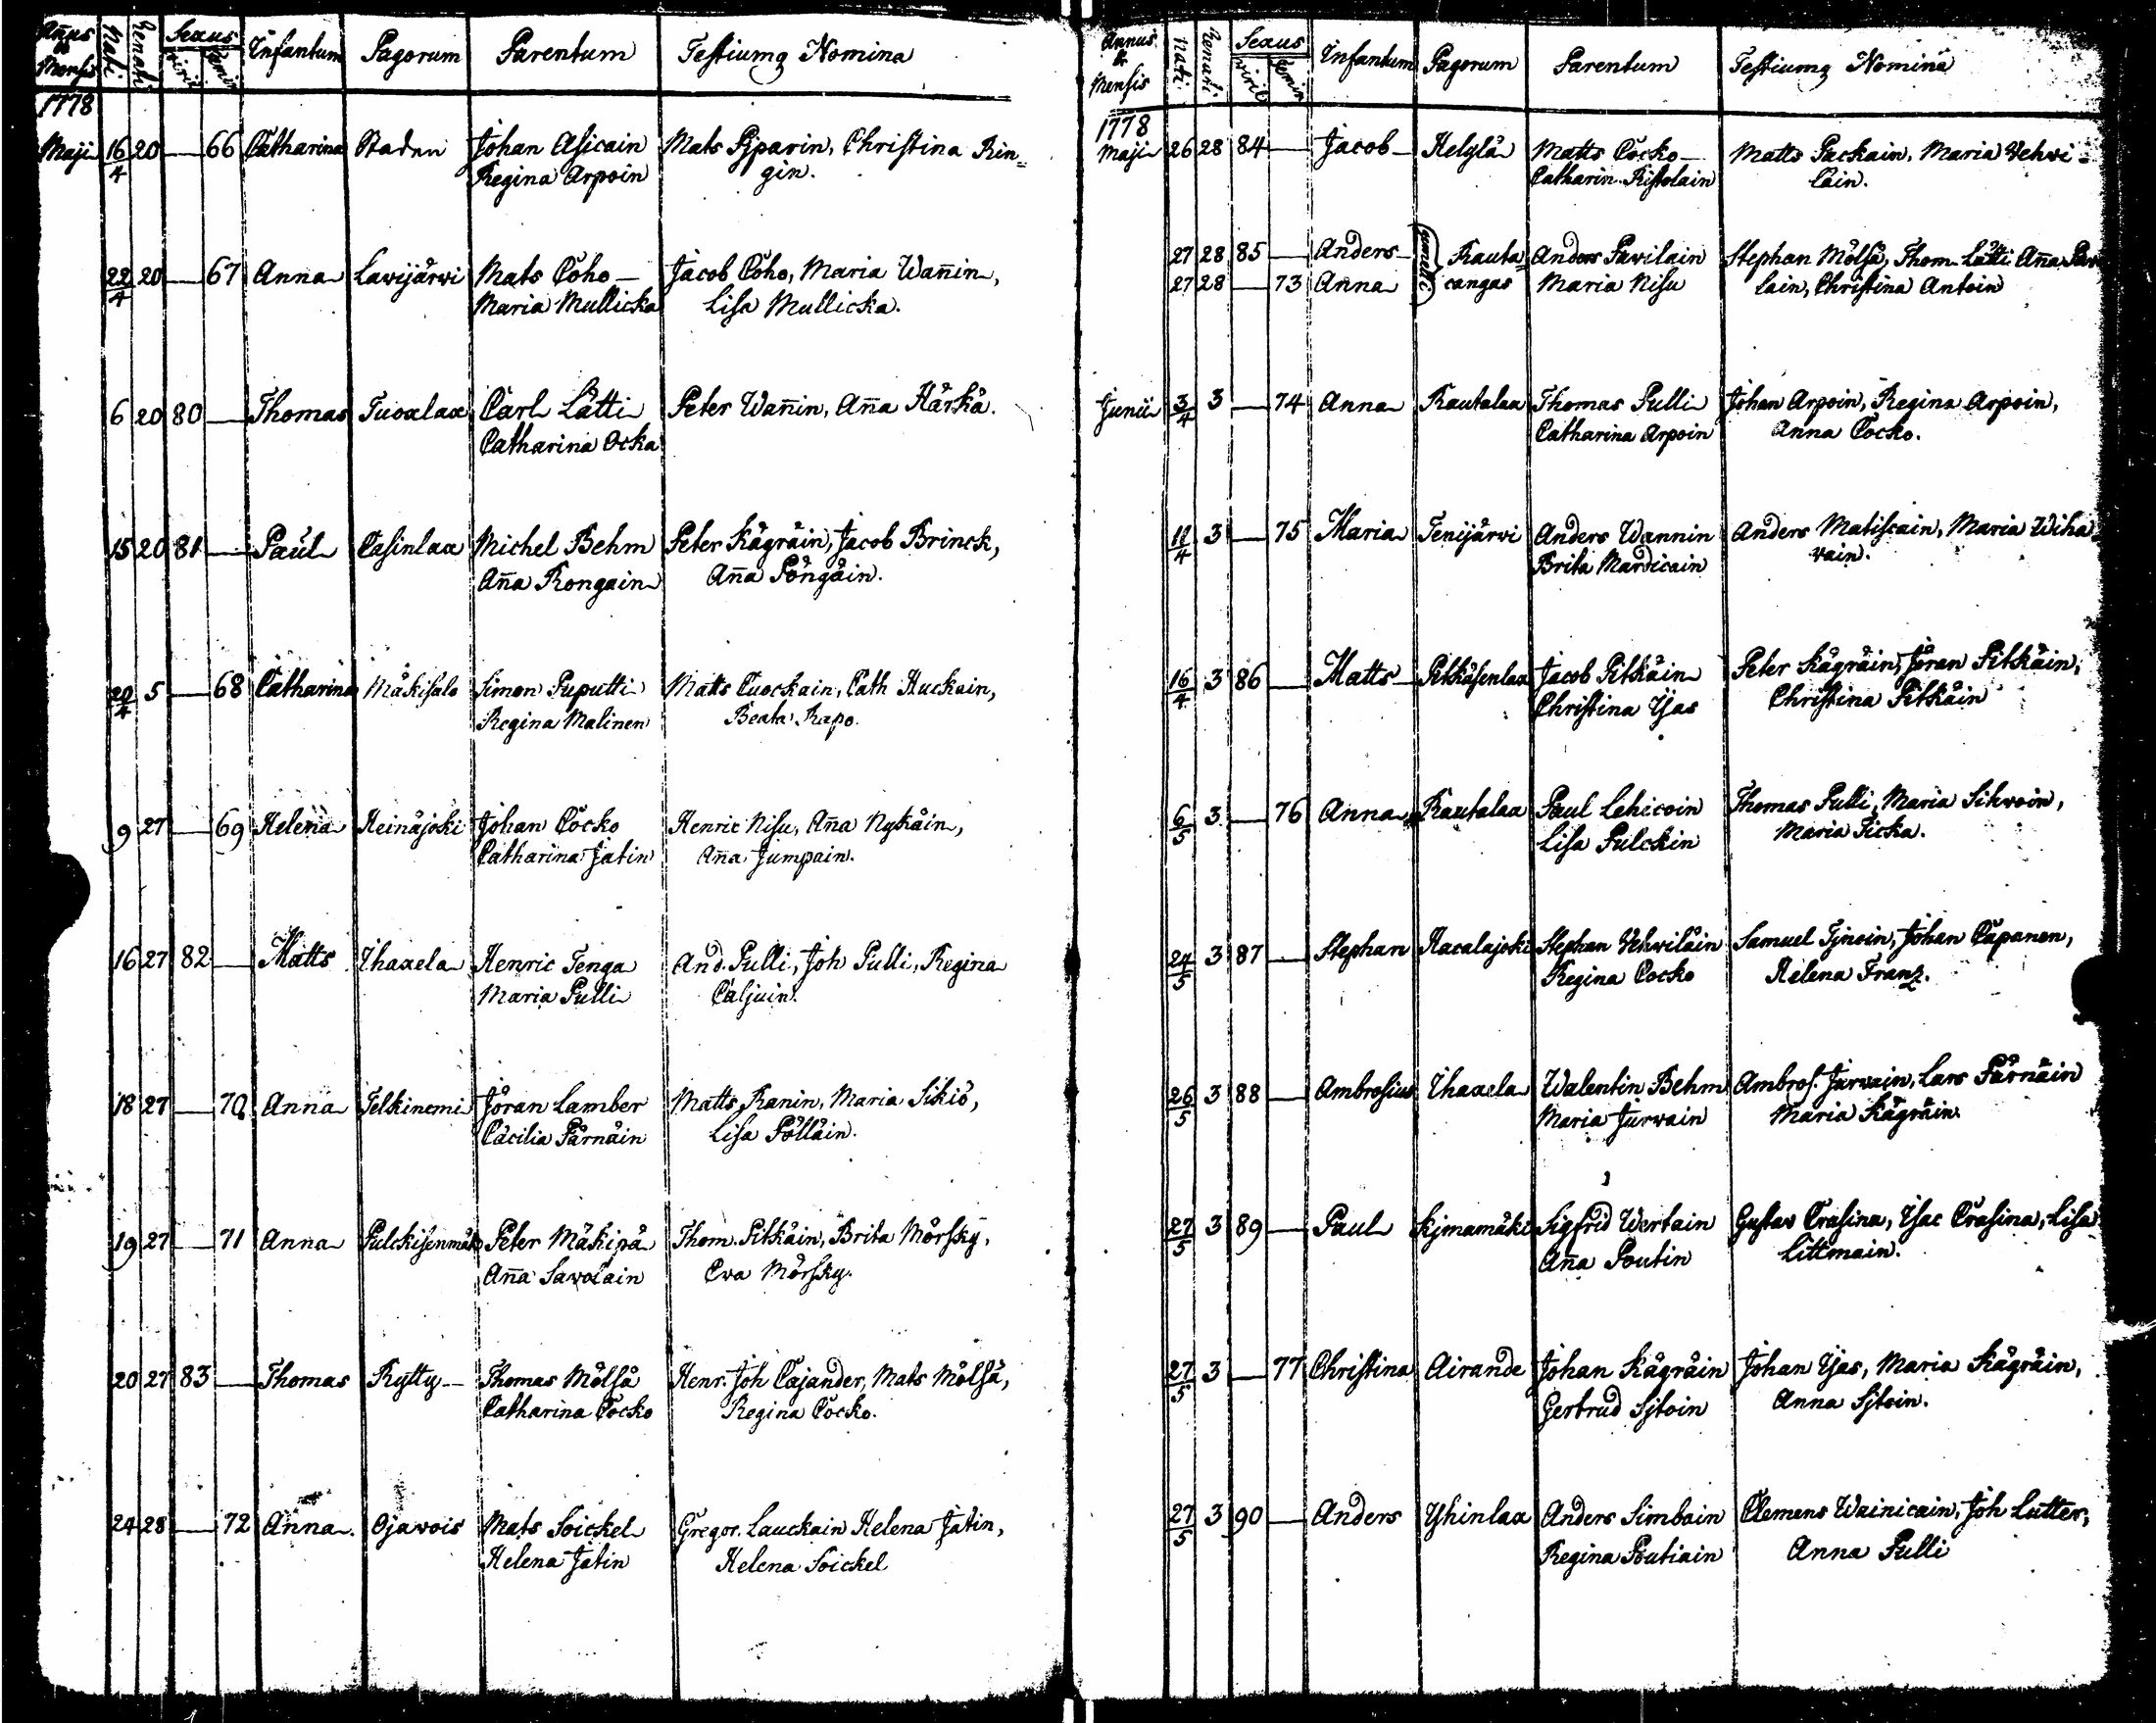 Annus & Mensis Nati Renati Sexus viril Femin Infantum Pagorum Parentum Testiumq Nomina
1778
Maji 16/4 20 — 66 Catharina Staden Johan Asicain Mats Pyparin, Christina Rin=
Regina Arpoin gin.
22/4 20 — 67 Anna Lavijärvi Mats Coho Jacob Coho, Maria Wan̄in,
Maria Mullicka Lisa Mullicka.
6 20 80 — Thomas Tuoxlax Carl Lätti Peter Wan̄in, An̄a Härkä.
Catharina Ocka
15 20 81 — Paul Casinlax Michel Behm Peter Kägräin, Jacob Brinck,
An̄a Rongain An̄a Pöngäin.
20/4 5 — 68 Catharina Mäkisalo Simon Puputti Matts Cuockain, Cath Huckain,
Regina Malinen Beata Rapo.
9 27 — 69 Helena Heinäjoki Johan Cocko Henric Nisu, An̄a Nykäin,
Catharina Jatin An̄a Jumpain.
16 27 82 — Matts Ihaxela Henric Tenga And. Pulli, Joh Pulli, Regina
Maria Pulli Caljuin.
18 27 — 70 Anna Telkinemi Jöran Lamber Matts Ranin, Maria Sikiö,
Cäcilia Pärnäin Lisa Pölläin.
19 27 — 71 Anna Pulckisenmäki Peter Mäkipä Thom. Pitkäin, Brita Mörsky,
An̄a Savolain Eva Mörsky.
20 27 83 — Thomas Rytty Thomas Mölsä Henr. Joh Cajander, Mats Mölsä,
Catharina Cocko Regina Cocko.
24 28 — 72 Anna Ojavois Mats Soickel Gregor. Lauckain Helena Jatin,
Helena Jatin Helena Soickel
Annus & Mensis Nati Renati Sexus viril Femin Infantum Pagorum Parentum Testiumq Nomina
1778
Maji 26 28 84 — Jacob Helylä Matts Cocko Matts Packain, Maria Vehvi=
Catharin Ristolain lain.
27 28 85 — Anders gemelli Rauta= Anders Pavilain Stephan Mölsä, Thom Lätti An̄a Pav
27 28 — 73 Anna cangas Maria Nisu lain, Christina Antoin
Junii 3/4 3 — 74 Anna Rautalax Thomas Pulli Johan Arpoin, Regina Arpoin,
Catharina Arpoin Anna Cocko.
11/4 3 — 75 Maria Tenijärvi Anders Wannin Anders Matiscain, Maria Wiha
Brita Mardicain vain.
16/4 3 86 — Matts Pitkäsenlax Jacob Pitkäin Peter Kägräin, Jöran Pitkäin,
Christina Yjas Christina Pitkäin
6/5 3 — 76 Anna Rautalax Paul Lehicoin Thomas Pulli, Maria Sihvoin,
Lisa Pulckin Maria Ticka.
24/5 3 87 — Stephan Kacalajoki Stephan Vehviläin Samuel Tynoin, Johan Capanen,
Regina Cocko Helena Franz.
26/5 3 88 — Ambrosius Ihaxela Walentin Behm Ambros. Jurvain, Lars Pärnäin
Maria Jurvain Maria Kägräin.
27/5 3 89 — Paul Kijmamäki Sigfrid Wertain Gustav Crasina, Isac Crasina, Lisa
An̄a Poutin Littmain.
27/5 3 — 77 Christina Airande Johan Kägräin Johan Yjas, Maria Kägräin,
Gertrud Sijtoin Anna Sijtoin.
27/5 3 90 — Anders Yhinlax Anders Simbain Clemens Wainicain, Joh Lutter,
Regina Poutiain Anna Pulli